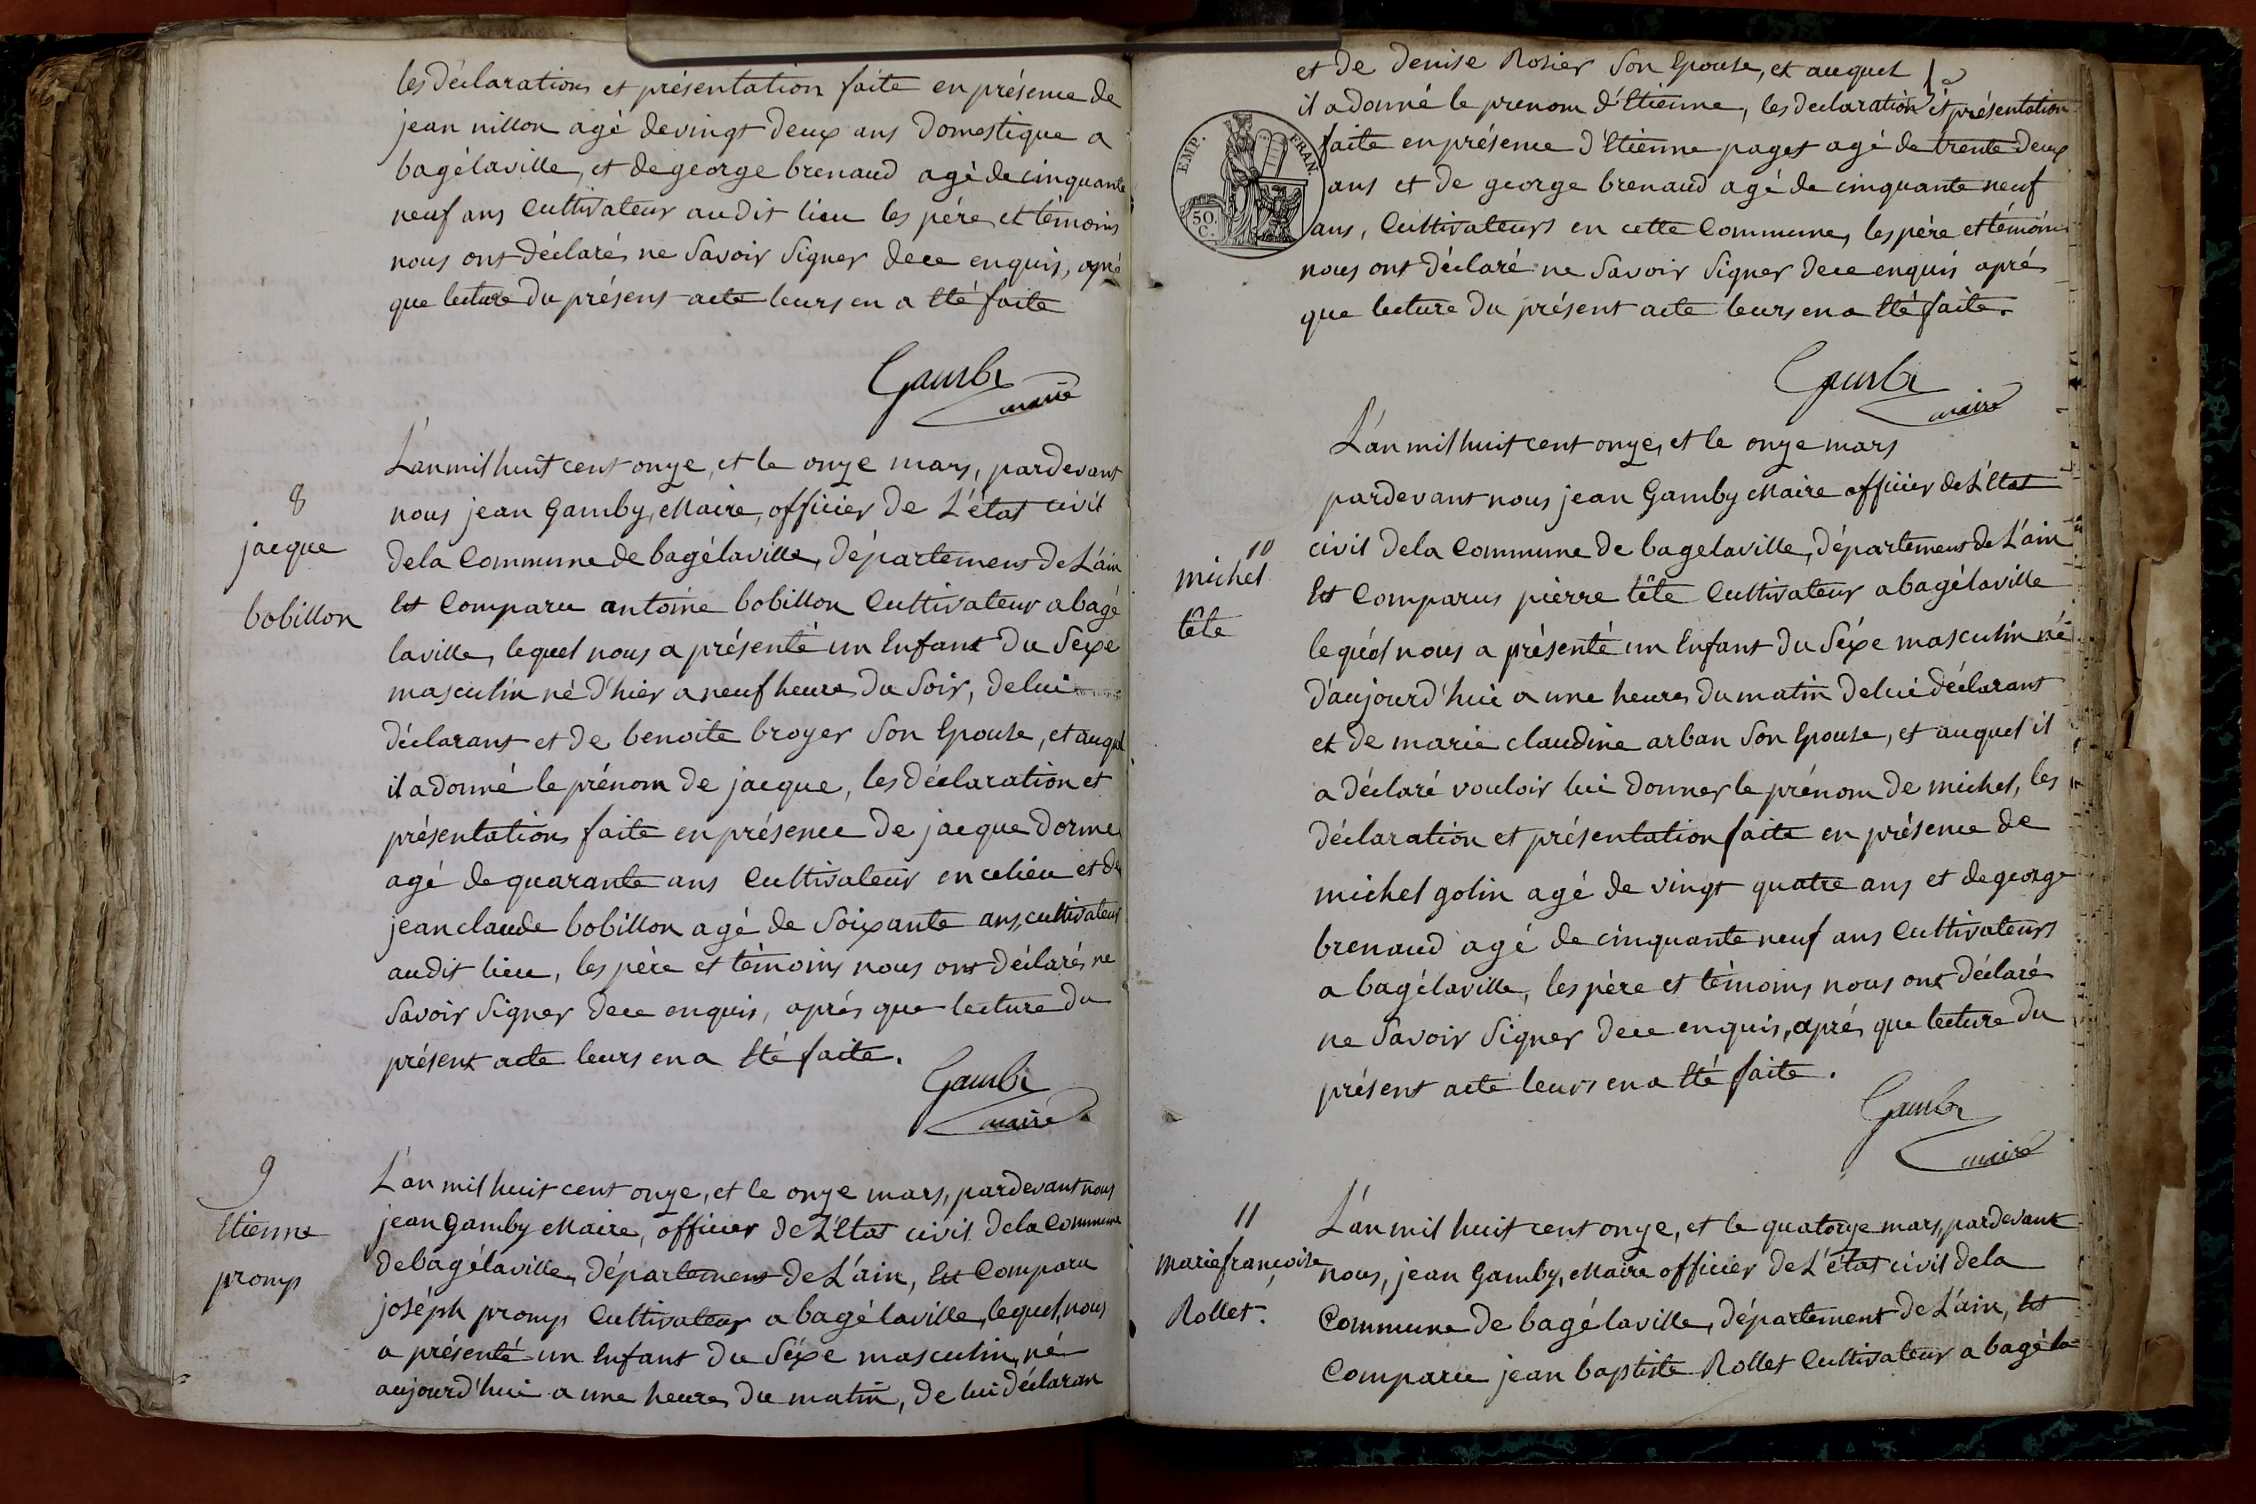 les déclarations et présentation faite en présence de
jean nillon agé de vingt deux ans domestique a
bagélaville, et de george brenaud agé de cinquante
neuf ans Cultivateur audit lieu les pére et témoins
nous ont déclarés ne Savoir Signer de ce enquis, aprés
que lecture du présent acte leurs en a Eté faite
Gambi
maire
8
jacque
bobillon
L'an mil huit cent onze, et le onze mars, pardevant
nous jean Gamby, Maire, officier de L'état civil
de la Commune de bagélaville, département de L'ain
Est Comparu antoine bobillon Cultivateur a bagé
laville, lequel nous a présenté un Enfant du Sexe
masculin né d'hier a neuf heures du Soir, de lui
déclarant et de benoite broyer Son Epouse, et auquel
il a donné le prénom de jacque, les déclaration et
présentation faite en présence de jacque dorme
agé de quarante ans Cultivateur en ce lieu et de
jean claude bobillon agé de Soixante ans, cultivateur
audit lieu, les père et témoins nous ont déclarés ne
Savoir Signer de ce enquis, aprés que lecture du
présent acte leurs en a Eté faite.
Gambi
maire
9
Etienne
promp
L'an mil huit cent onze, et le onze mars, pardevant nous
jean Gamby Maire, officier de L'Etat civil de la Commune
de bagélaville, département de L'ain, Est Comparu
joséph promp Cultivateur a bagélaville, lequel, nous
a présenté un Enfant du Séxe masculin, né
aujourd'hui a une heure du matin, de lui déclaran
et de denise Rosier Son Epouse, et auquel
il a donné le prenom d'Etienne, les declaration et présentation
EMP. FRAN.
50.
C.
faite en présence d'Etienne paget agé de trente deux
ans et de george brenaud agé de cinquante neuf
ans, Cultivateurs en cette Commune, les père et témoins
nous ont déclaré ne Savoir Signer de ce enquis aprés
que lecture du présent acte leurs en a Eté faite.
Gambi
maire
10
michel
tête
L'an mil huit cent onze, et le onze mars
pardevant nous jean Gamby Maire officier de L'Etat
civil de la Commune de bagelaville, département de L'ain
Est Comparus pierre tête Cultivateur a bagélaville
lequel nous a présenté un Enfant du Séxe masculin né
d'aujourd'hui a une heures du matin de lui déclarant
et de marie claudine arban Son Epouse, et auquel il
a déclaré vouloir lui donner le prénom de michel, les
déclaration et présentation faite en présence de
michel golin agé de vingt quatre ans et de george
brenaud agé de cinquante neuf ans Cultivateurs
a bagélaville, les père et témoins nous ont déclaré
ne Savoir Signer de ce enquis, aprés que lecture du
présent acte leurs en a Eté faite.
Gambi
maire
11
marie françoise
Rollet.
L'an mil huit cent onze, et le quatorze mars, pardevant
nous, jean Gamby, Maire officier de L'état civil de la
Commune de bagélaville, département de L'ain, Est
Comparu jean baptiste Rollet Cultivateur a bagéla=